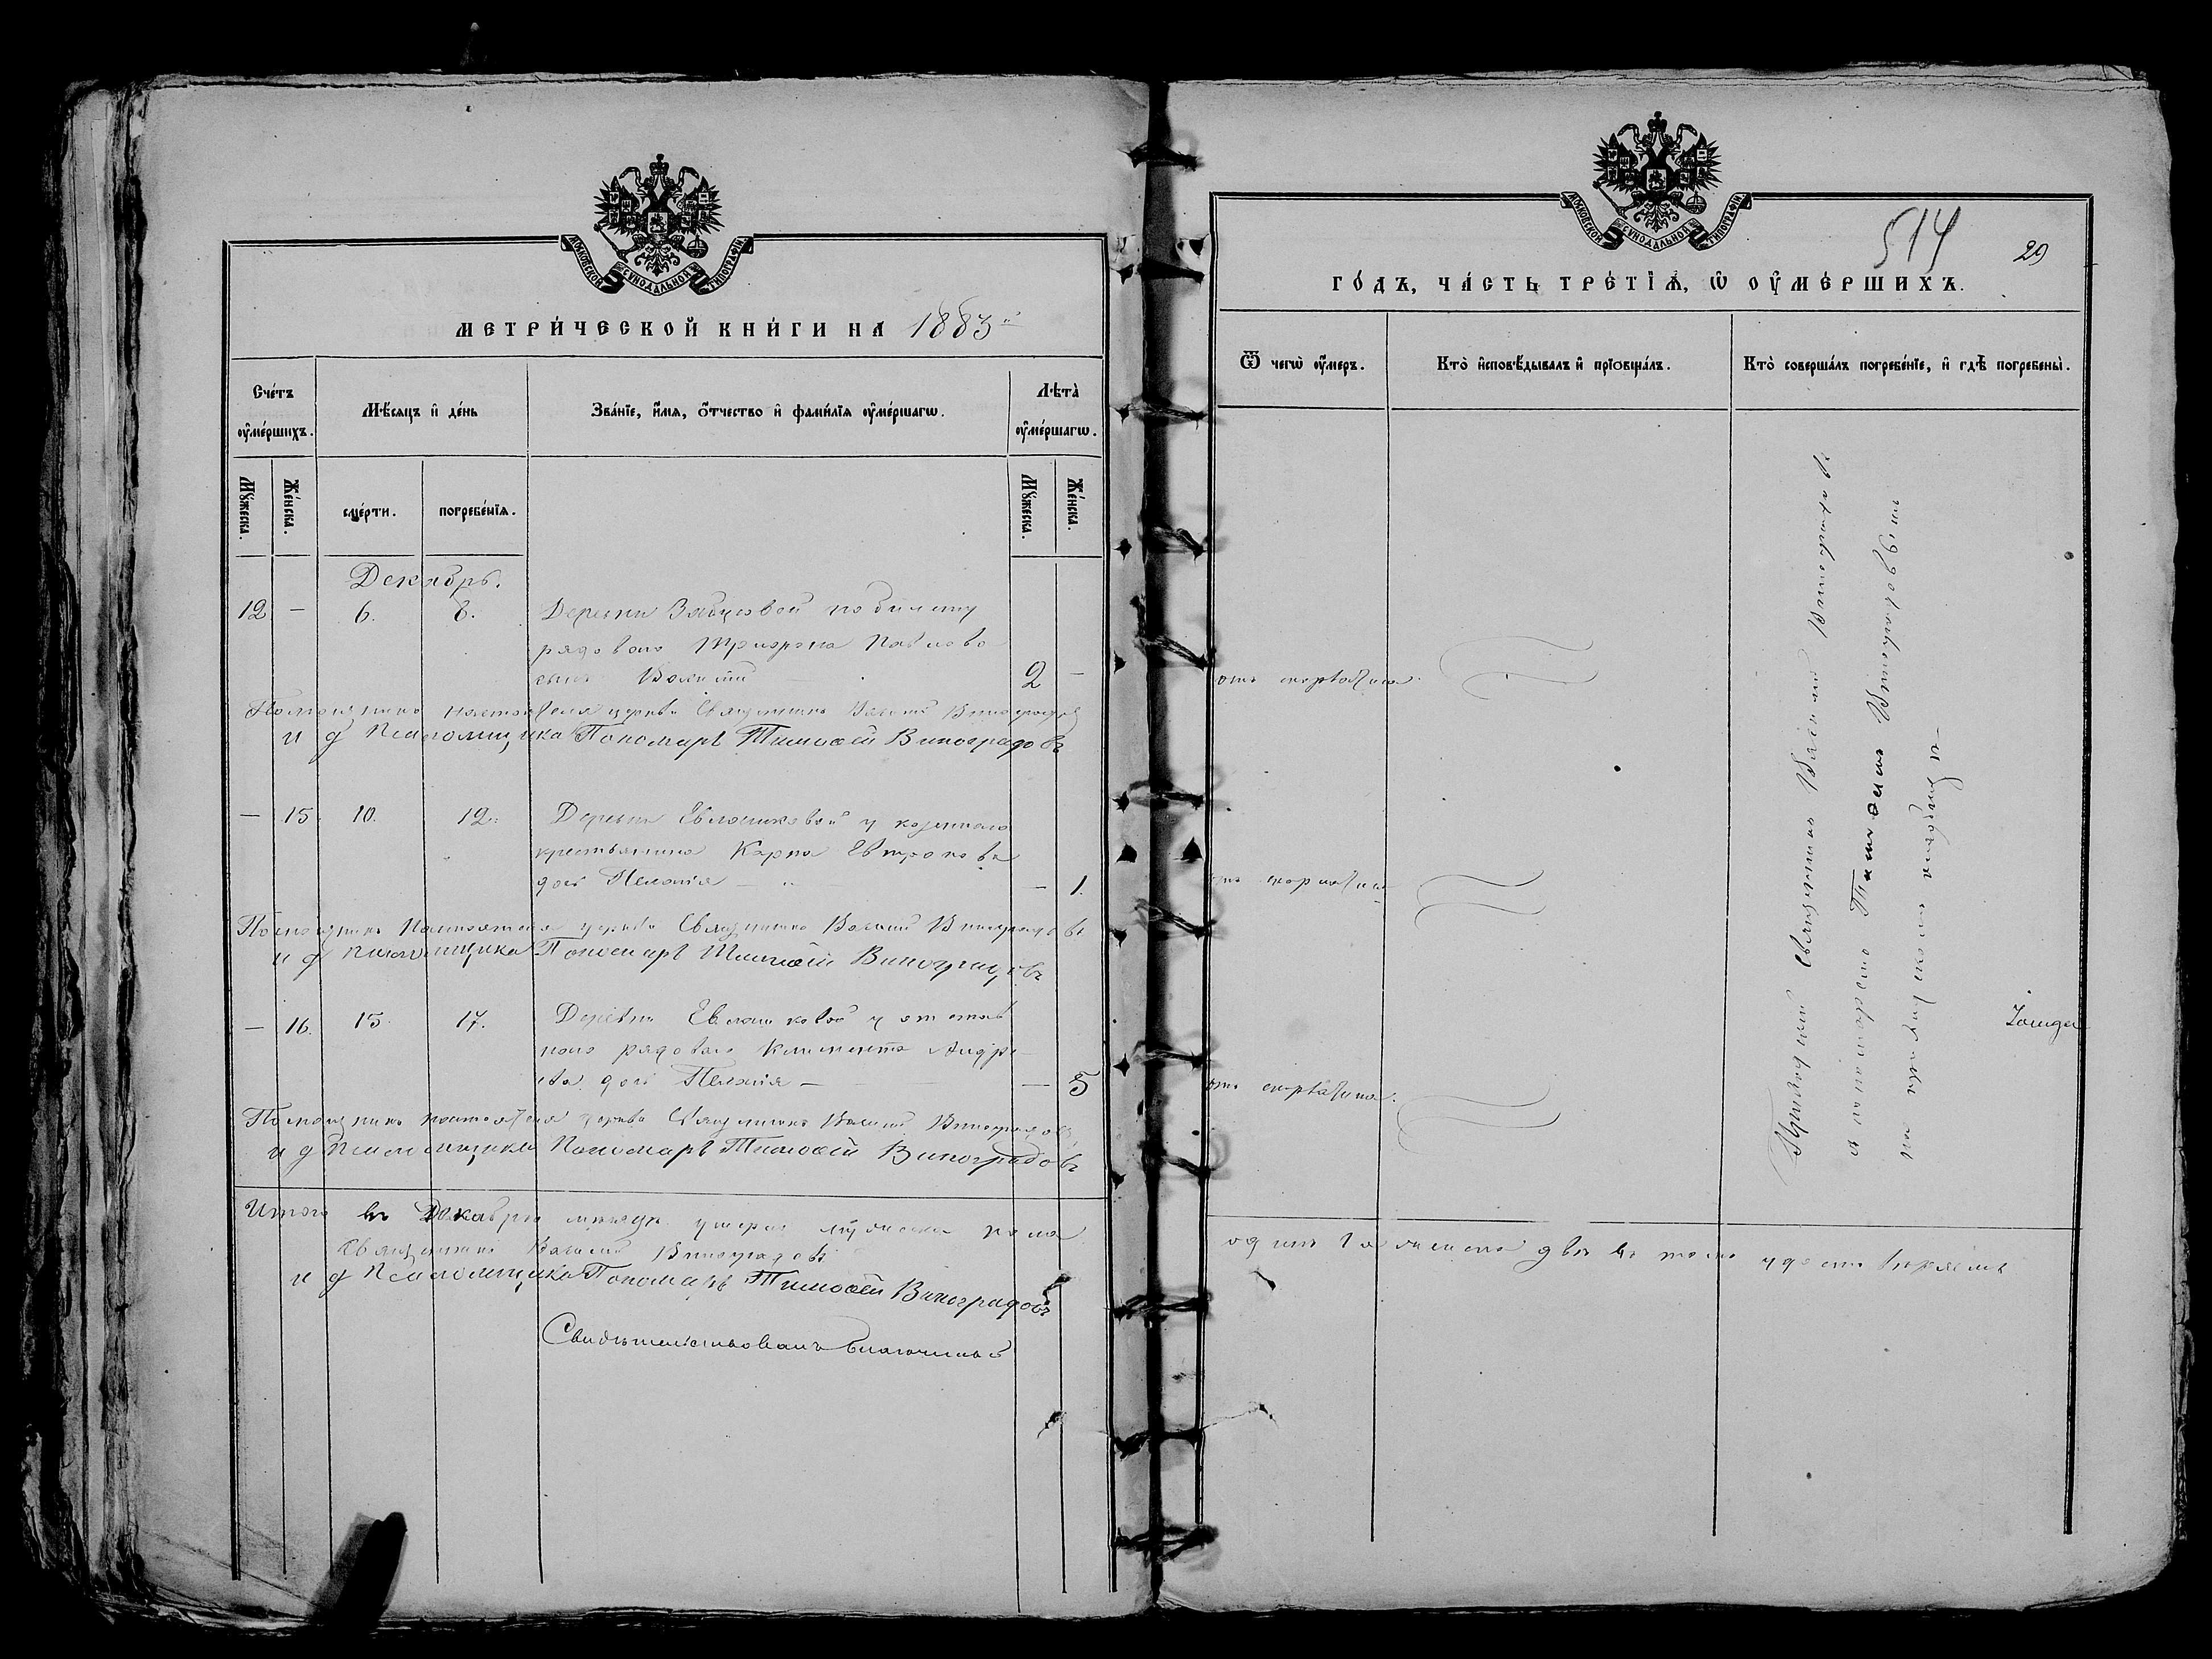 МОСКОВСКОЙ СѴНОДАЛЬНОЙ ТИПОГРАФІИ
МЕТРИ́ЧЕСКОЙ КНИ́ГИ НА 1883й
Сче́тъ ᲂу҆ме́ршихъ.
Мѣ́сяцъ и҆ де́нь
Зва́нїе, и҆́мя, ѻ҆́тчество и҆ фами́лїя ᲂу҆ме́ршагѡ.
Лѣ́та ᲂу҆ме́ршагѡ.
Мꙋ́жеска.
Же́нска.
сме́рти.
погребе́нїѧ.
Мꙋ́жеска.
Же́нска.
Декабрь.
12 — 6. 8. Деревни по билету
рядоваго Трифона Павлова
сынъ 2 —
Помощникъ настоятеля церкви Священникъ Василій Виноградовъ
и д Псаломщика Пономарь Тимоѳей Виноградовъ
— 15. 10. 12. Деревни Евлашковой у
крестьянина Карпа Евтропова
дочь Пелагія — — 1.
Помощникъ Настоятеля церкви Священникъ Василій Виноградовъ
и д псаломщика Пономарь Тимоѳей Виноградовъ
— 16. 15. 17. Деревни Евлашковой у отстав
наго рядоваго Климента Андре-
ева дочь Пелагія — — 5
Помощникъ настоятеля церкви Священникъ Василій Виноградовъ
и д Псаломщика Пономарь Тимоѳей Виноградовъ
Итого въ Декабрѣ мѣсяцѣ умерло мужеска пола
Священникъ Василій Виноградовъ
и д Псаломщика Пономарь Тимоѳей Виноградовъ
Свидѣтельствовалъ благочинный
МОСКОВСКОЙ СѴНОДАЛЬНОЙ ТИПОГРАФІИ
514
29
ГО́ДЪ, ЧА́СТЬ ТРЕ́ТЇѦ, Ѡ҆ ОУ҆МЕ́РШИХЪ.
Ѿ чегѡ̀ ᲂу҆́меръ.
Кто̀ и҆сповѣ́дывалъ и҆ прїѻбща́лъ.
Кто̀ соверша́лъ погребе́нїе, и҆ гдѣ̀ погребены̀.
отъ скорлатина.
отъ скорлатина
отъ скорлатина.
Приходскій Священникъ Василій Виноградовъ
съ пономаремъ Тимоѳеемъ Виноградовымъ
на приходскомъ кладбищѣ
одинъ а женска двѣ въ томъ